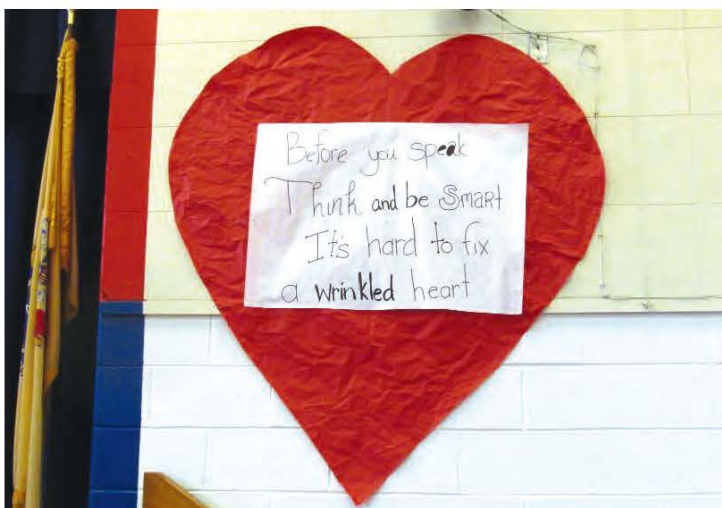 Before you speak
Think and be Smart
It's hard to fix
a wrinkled heart